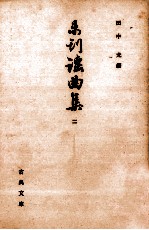 田中允編
未刊謡曲集
二
古典文庫